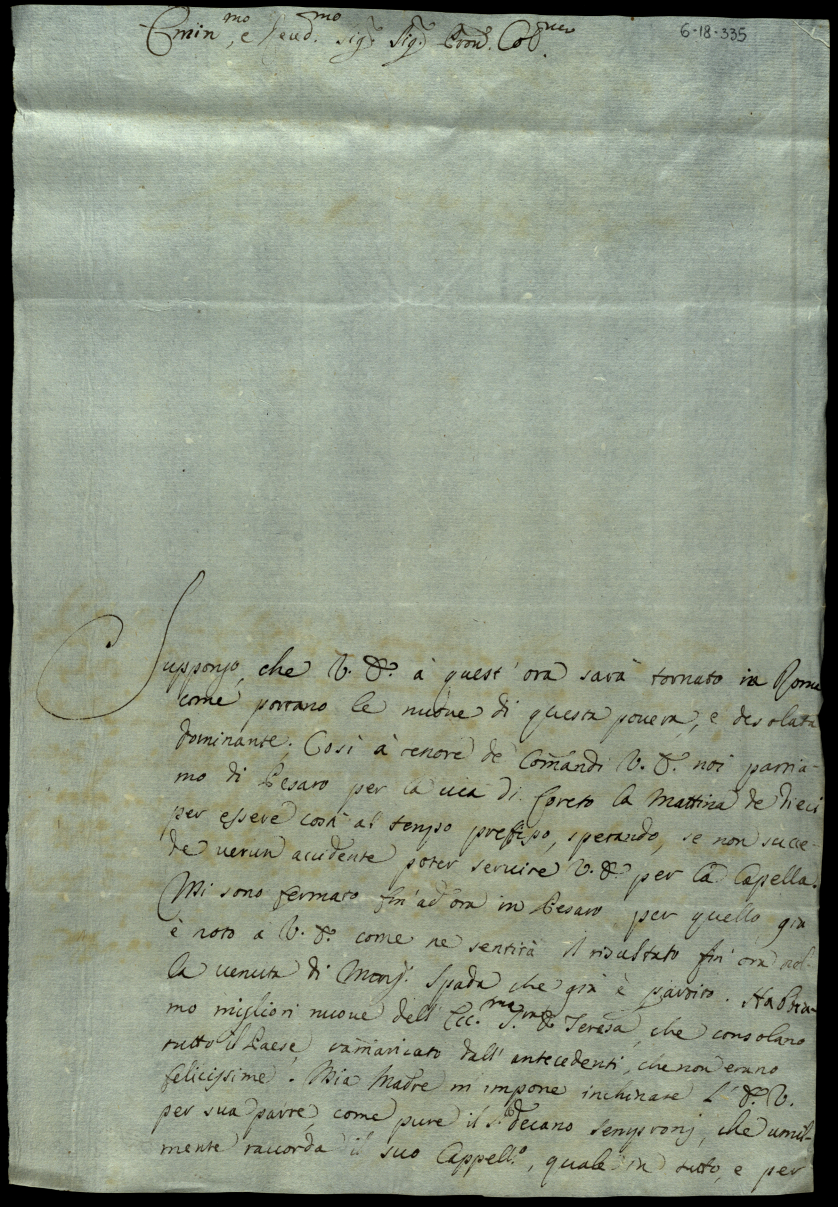 Emin.mo, e Reud.mo Sig.r Sig.r Pron. Col.mo
6-18-335
Suppongo, che V. E. à quest'ora sarà tornato in Roma
come portano le nuove di questa povera, e desolata
dominante. Così à tenore de Comãndi V. E. noi partia-
mo di Pesaro per la via di Loreto la Mattina de dieci
per essere costà al tempo prefisso, sperando, se non succe-
de verun accidente poter servire V. E. per la Capella.
Mi sono fermato fin'ad'ora in Pesaro per quello, già
è noto à V. E. come ne sentirà il risultato fin'ora nel-
la venuta di Mons.r Spada che già è partito. Habbia-
mo migliori nuove dell'Ecc.ma S.ra D. Teresa, che consolano
tutto il Paese, ramaricato dall'antecedenti, che non erano
felicissime. Mia Madre m'impone inchinare l'E. V.
per sua parte, come pure il S.r Decano Sempronj, che umil-
mente raccorda il suo Cappell.o, quale in tutto, e per